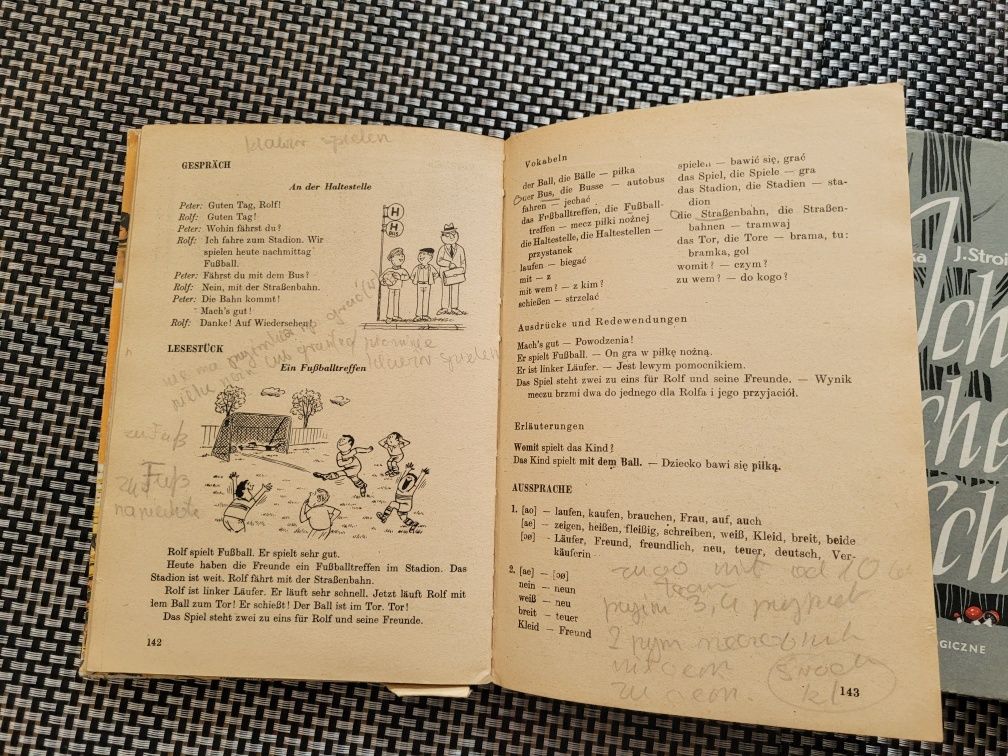 klavier spielen
GESPRÄCH
An der Haltestelle
Peter: Guten Tag, Rolf!
Rolf: Guten Tag!
Peter: Wohin fährst du?
Rolf: Ich fahre zum Stadion. Wir
spielen heute nachmittag
Fußball.
Peter: Fährst du mit dem Bus?
Rolf: Nein, mit der Straßenbahn.
Peter: Die Bahn kommt!
Mach's gut!
Rolf: Danke! Auf Wiedersehen!
H
H
BUS
klavier spielen
LESESTÜCK
Ein Fußballtreffen
zu Fuß
zu Fuß
na piechotę
Rolf spielt Fußball. Er spielt sehr gut.
Heute haben die Freunde ein Fußballtreffen im Stadion. Das
Stadion ist weit. Rolf fährt mit der Straßenbahn.
Rolf ist linker Läufer. Er läuft sehr schnell. Jetzt läuft Rolf mit
dem Ball zum Tor! Er schießt! Der Ball ist im Tor. Tor!
Das Spiel steht zwei zu eins für Rolf und seine Freunde.
142
Vokabeln
der Ball, die Bälle — piłka
der Bus, die Busse — autobus
fahren — jechać
das Fußballtreffen, die Fußball-
treffen — mecz piłki nożnej
die Haltestelle, die Haltestellen —
przystanek
laufen — biegać
mit — z
mit wem? — z kim?
schießen — strzelać
spielen — bawić się, grać
das Spiel, die Spiele — gra
das Stadion, die Stadien — sta-
dion
die Straßenbahn, die Straßen-
bahnen — tramwaj
das Tor, die Tore — brama, tu:
bramka, gol
womit? — czym?
zu wem? — do kogo?
Ausdrücke und Redewendungen
Mach's gut — Powodzenia!
Er spielt Fußball. — On gra w piłkę nożną.
Er ist linker Läufer. — Jest lewym pomocnikiem.
Das Spiel steht zwei zu eins für Rolf und seine Freunde. — Wynik
meczu brzmi dwa do jednego dla Rolfa i jego przyjaciół.
Erläuterungen
Womit spielt das Kind?
Das Kind spielt mit dem Ball. — Dziecko bawi się piłką.
AUSSPRACHE
1. [ao] — laufen, kaufen, brauchen, Frau, auf, auch
[ae] — zeigen, heißen, fleißig, schreiben, weiß, Kleid, breit, beide
[oø] — Läufer, Freund, freundlich, neu, teuer, deutsch, Ver-
käuferin
2. [ae] — [oø]
nein — neun
weiß — neu
breit — teuer
Kleid — Freund
143
J. Stroi
Ich
GICZNE